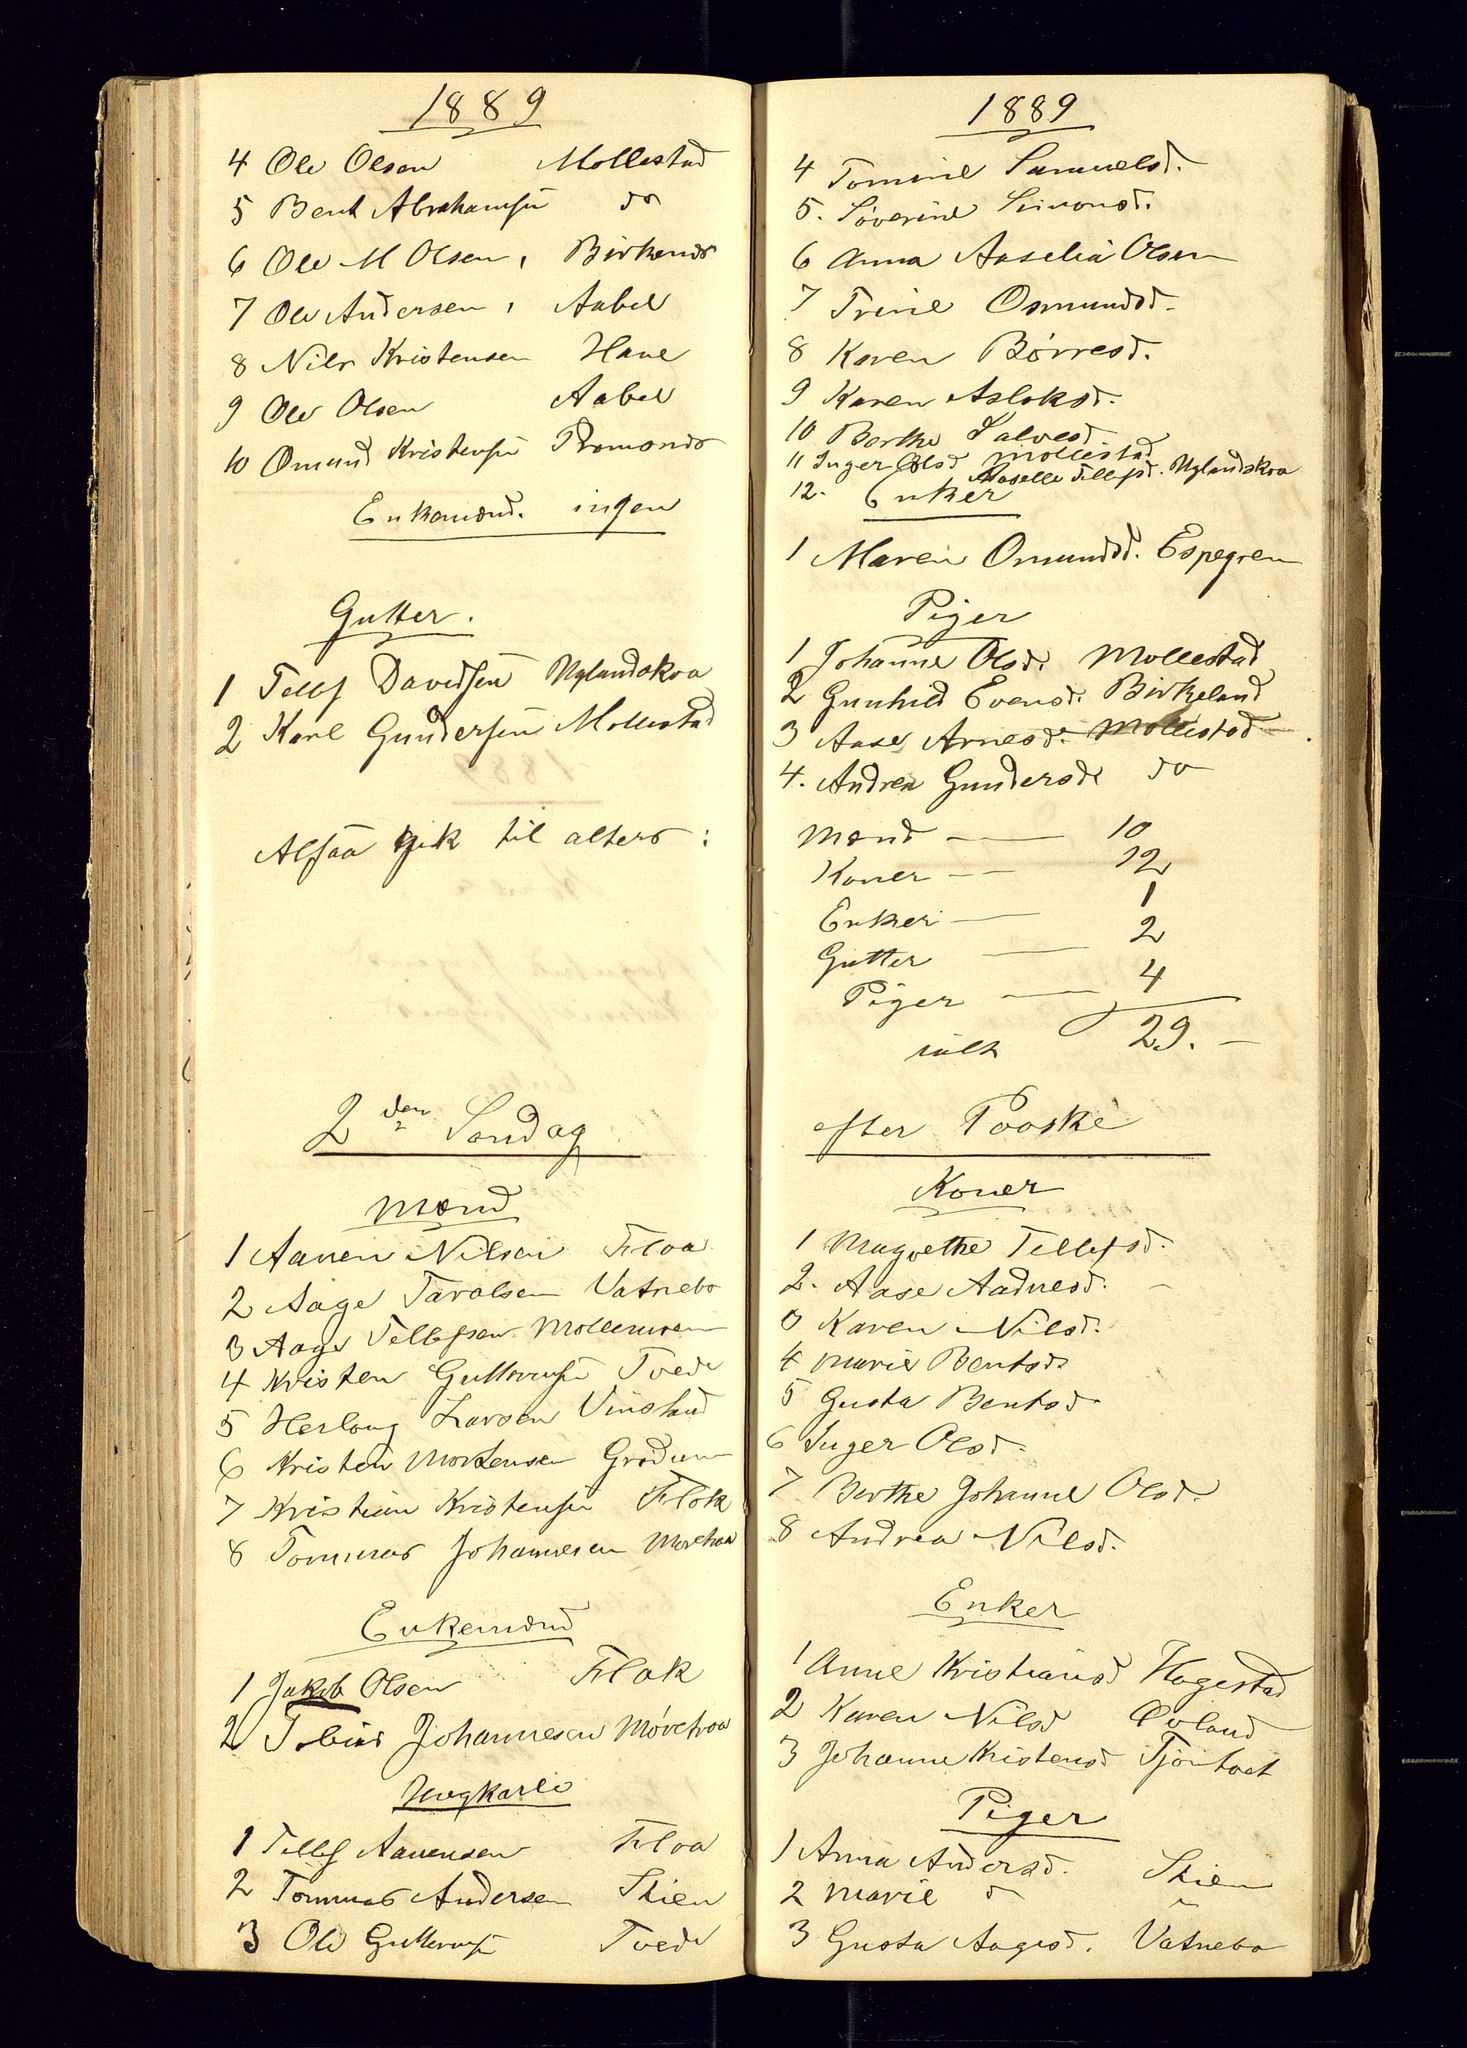 1889
4 Ole Olsen Mollestad
5 Bent Abrahamsen do
6 Ole M Olsen, Birkends
7 Ole Andersen, Aabel
8 Nils Kristensen Hane
9 Ole Olsen Aabel
10 Omund Kristensen
Enkemænd. ingen
Gutter.
1 Tellf Davidsen Uglandskva
2 Karl Gundersen Mollestad
Alsaa gik til alters:
2den Søndag
Mænd
1 Aanen Nilsen Floa
2 Aage Taralsen Vatnebo
3 Aage Tellefsen Mollemoen
4 Kristen Guttormsen Tvede
5 Herlong Larsen Vinstad
6 Kristen Mortensen Grødum
7 Kristian Kristensen Flak
8 Tommas Johannesen
Enkemænd
1 Jakob Olsen Flak
2 Tobias Johannesen
Ungkarle
1 Tellf Aanensen Floa
2 Tommas Andersen Skien
3 Ole Guttormsen Tvede
1889
4 Tomine Samuelsd.
5. Søverine Simonsd.
6 Anna Aaselia Olsen
7 Trine Osmundsd.
8 Karen Børresd.
9 Karen Aslaksd.
10 Berthe Salvesd
11 Inger Olsd Mollestad
12. Aaselle Tellefsd. Uglandskva
Enker
1 Maren Omundsd. Espegren
Piger
1 Johanne Olsd. Mollestad
2 Gunhild Evensd. Birkeland
3 Aase Arnesd. Mollestad
4. Andrea Gundersd do
Mænd — 10
Koner — 12
Enker — 1
Gutter — 2
Piger — 4
ialt 29. —
efter Paaske
Koner
1 Magrethe Tellefsd.
2. Aase Aadnesd. —
3 Karen Nilsd.
4 Marie Bentsd.
5 Gusta Bentsd
6 Inger Olsd.
7 Berthe Johanne Olsd.
8 Andrea Nilsd.
Enker
1 Anne Kristiansd Hagestad
2 Karen Nilsd Øvland
3 Johanne Kristensd
Piger
1 Anna Andersd. Skien
2 Marie d "
3 Gusta Aagesd. Vatnebo